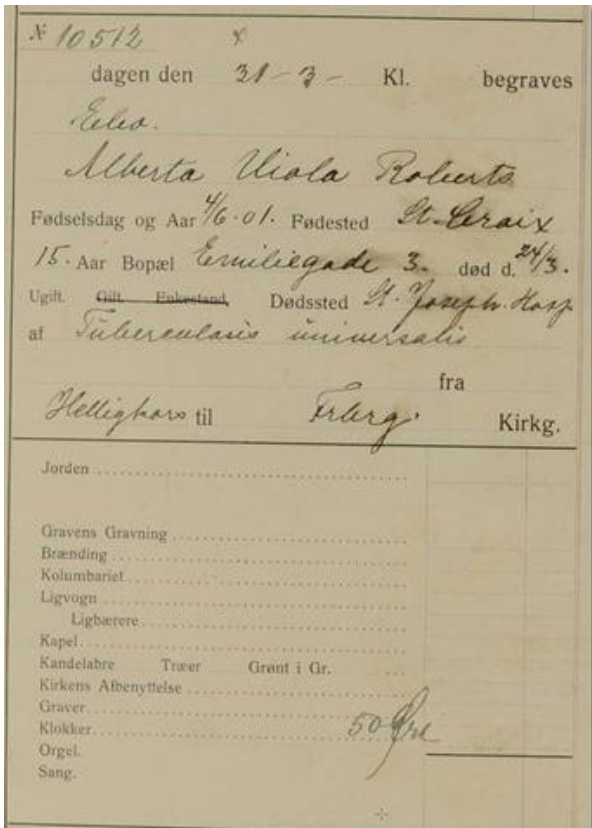 № 10512 x
dagen den 31-3- Kl. begraves
Elev.
Alberta Viola Roberts
Fødselsdag og Aar 4/6-01. Fødested St. Croix
15. Aar Bopæl Emiliegade 3. død d. 24/3.
Ugift. Gift. Enkestand, Dødssted St. Joseph. Hosp
af Tuberculosis universalis
fra
Helligkors til Frbrg. Kirkg.
Jorden
Gravens Gravning
Brænding
Kolumbariet
Ligvogn
Ligbærere
Kapel
Kandelabre Træer Grønt i Gr.
Kirkens Afbenyttelse
Graver
Klokker 50 Øre
Orgel.
Sang.